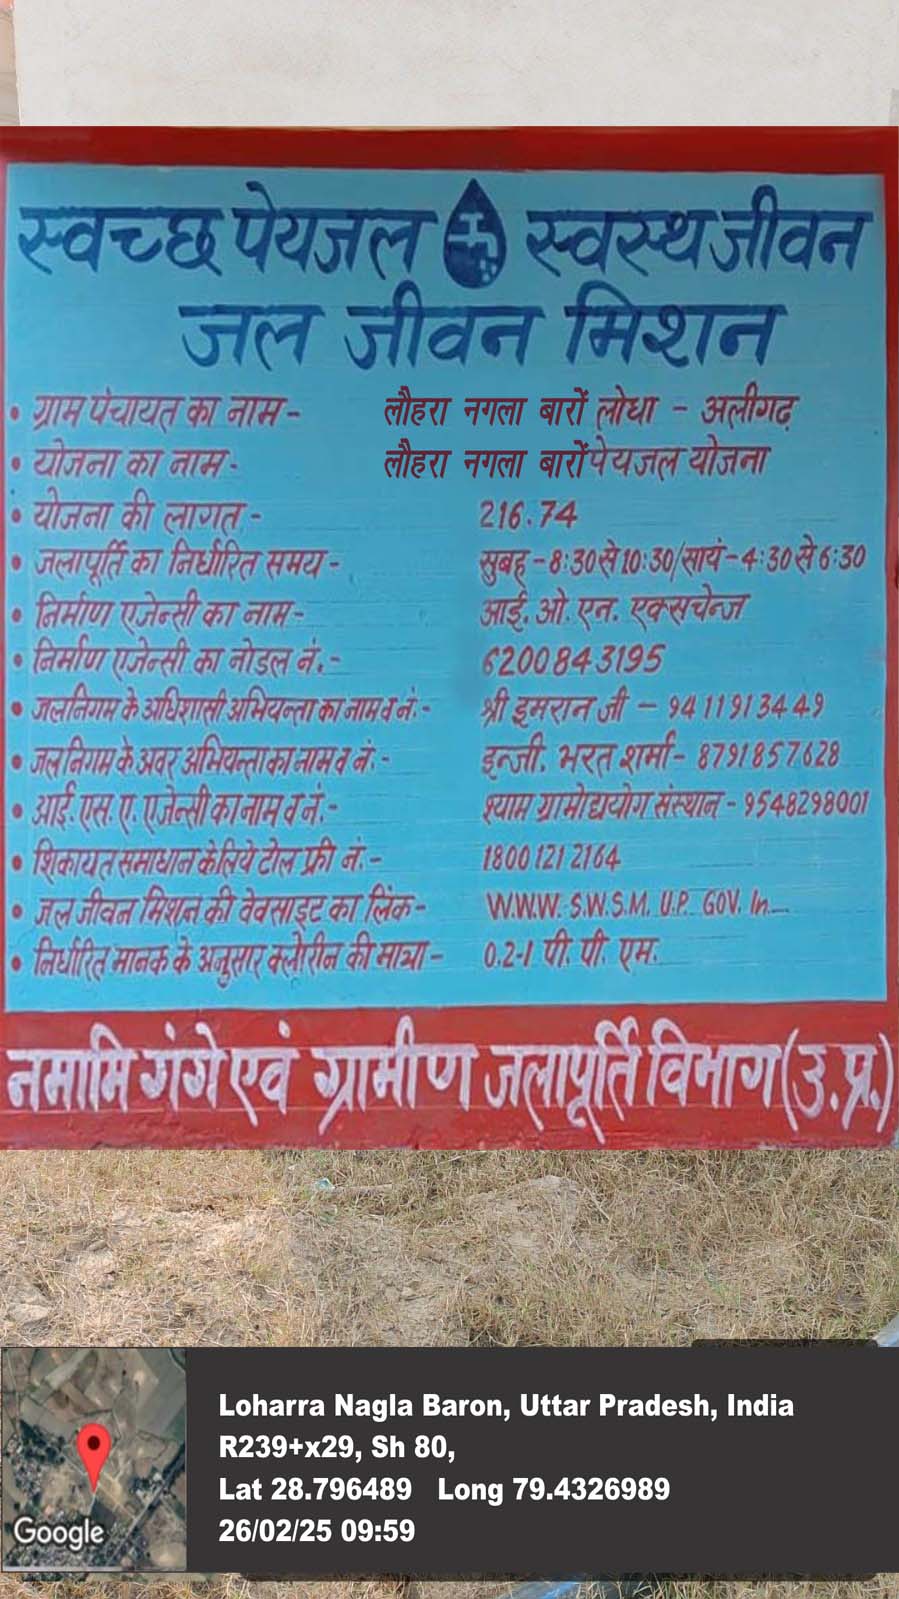 स्वच्छ पेयजल स्वस्थ जीवन
जल जीवन मिशन
• ग्राम पंचायत का नाम - लौहरा नगला बारों लोधा - अलीगढ़
• योजना का नाम - लौहरा नगला बारों पेयजल योजना
• योजना की लागत - 216.74
• जलापूर्ति का निर्धारित समय - सुबह - 8:30 से 10:30/सायं - 4:30 से 6:30
• निर्माण एजेन्सी का नाम - आई. ओ. एन. एक्सचेन्ज
• निर्माण एजेन्सी का नोडल नं. - 6200843195
• जलनिगम के अधिशासी अभियन्ता का नाम व नं. - श्री इमरान जी - 9411913449
• जलनिगम के अवर अभियन्ता का नाम व नं. - इन्जी. भरत शर्मा - 8791857628
• आई. एस. ए. एजेन्सी का नाम व नं. - श्याम ग्रामोद्ययोग संस्थान - 9548298001
• शिकायत समाधान के लिये टोल फ्री नं. - 1800 121 2164
• जल जीवन मिशन की वेवसाइट का लिंक - W.W.W. S.W.S.M. U.P. GOV. In
• निर्धारित मानक के अनुसार क्लोरीन की मात्रा - 0.2-1 पी. पी. एम.
नमामि गंगे एवं ग्रामीण जलापूर्ति विभाग (उ.प्र.)
Loharra Nagla Baron, Uttar Pradesh, India
R239+x29, Sh 80,
Lat 28.796489 Long 79.4326989
26/02/25 09:59
Google